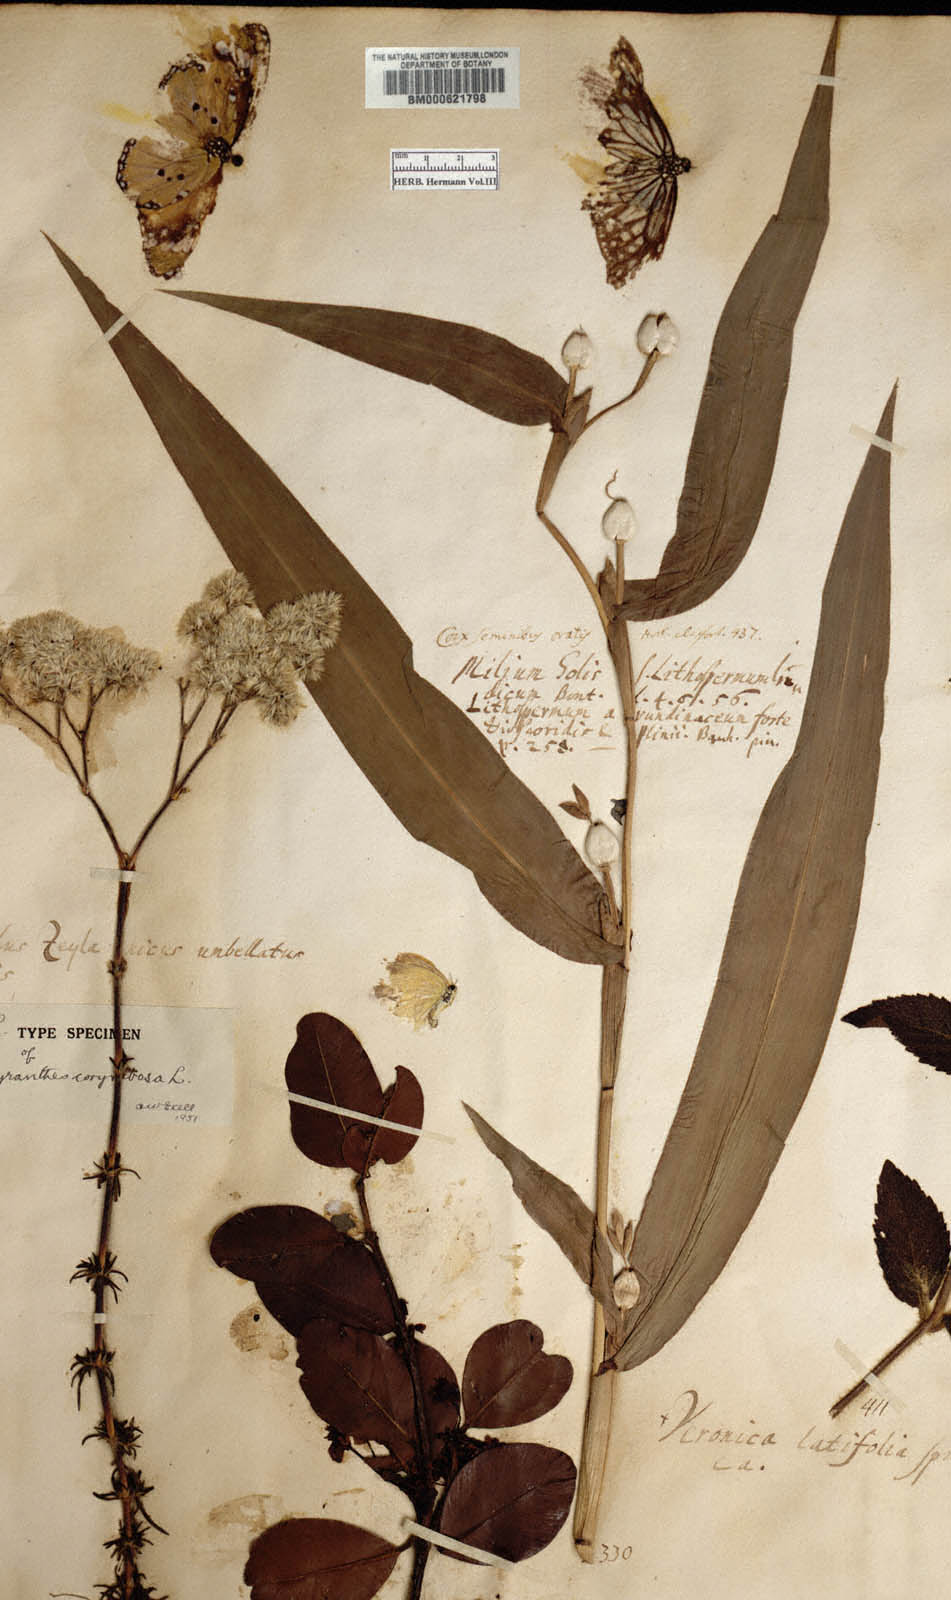 THE NATURAL HISTORY MUSEUM, LONDON
DEPARTMENT OF BOTANY
BM000621798
mm 1 2 3
HERB. Hermann Vol.III
Coix seminibus ovatis Hort. cliffort. 437.
Milium Solis s. Lithospermum
dicum Bont. l. 6. 56.
Lithospermum arundinaceum forte
Plinii. Bauh. pin.
p. 258.
Zeylanicus umbellatus
TYPE SPECIMEN
of
yranthes corymbosa L.
1951
411
Veronica latifolia
330